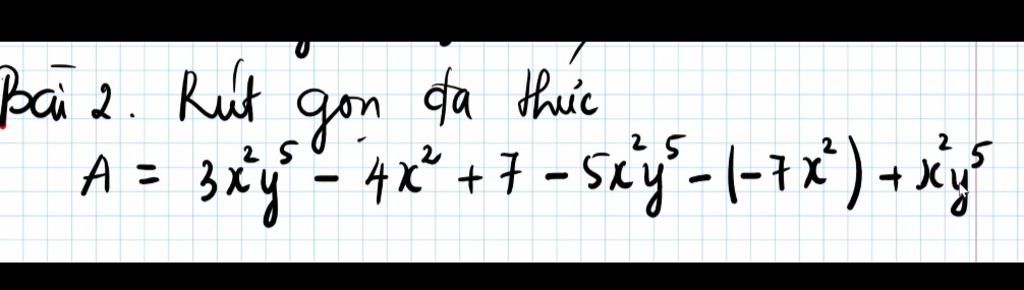 Bài 2. Rút gọn đa thức
A = 3x²y⁵ - 4x² + 7 - 5x²y⁵ - (-7x²) + x²y⁵